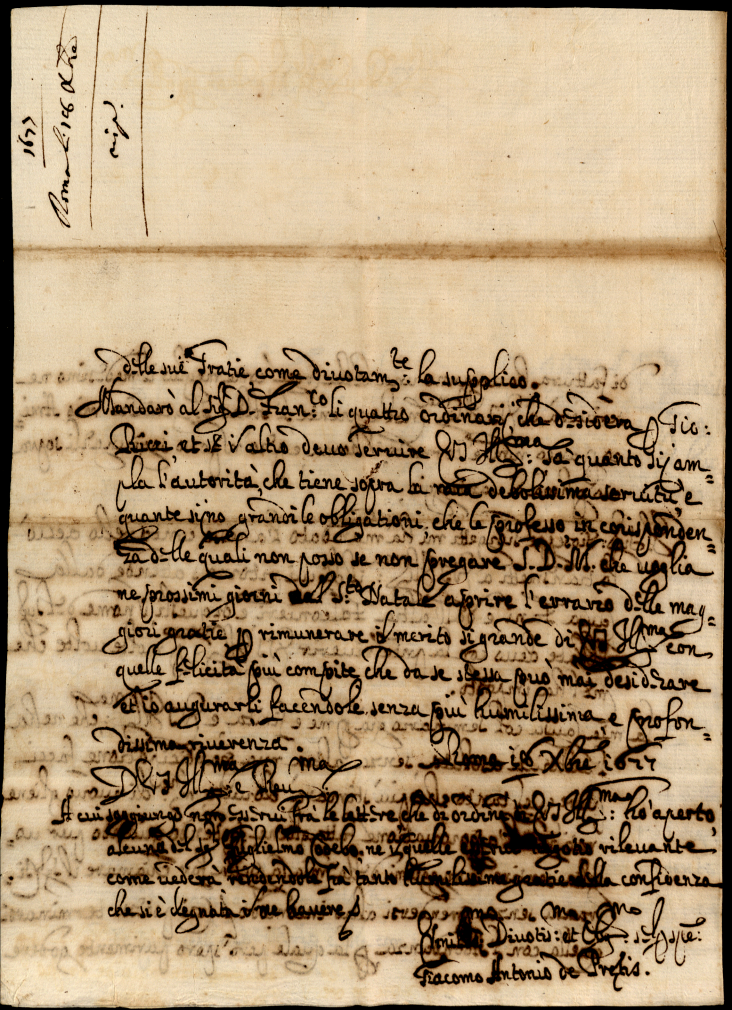 1677
Roma li 18 Xbre
risp.
delle sue Gratie, come divotam.te la supplico.
Mandarò al Sig.r D. Fran.co li quattro ordinarij che desidera p Gio:
Ricci, et se in altro devo servire V.S. Ill.ma: sà quanto sij am=
pla l'autorità, che tiene sopra la mia debolissima servitù, e
quante sijno grandi le obligationi, che le professo in corisponden=
za delle quali non posso se non pregare S. D. M. che voglia
ne prossimi giorni del S.to Natale aprire l'errario delle mag=
giori gratie p rimunerare il merito sì grande di V.S. Ill.ma con
quelle felicità più compite, che da se stessa può mai desiderare
et io augurarli facendole senza più humilissima e profon=
dissima riverenza.
Roma 18 Xbre 1677
D. V.S. Ill.ma e Rev.ma
A cui soggiungo non esservi frà le lettere che di ordine di V.S. Ill.ma: hò aperto,
alcuna del Sig.r Guglielmo ne in quelle negotio rilevante
come vederà rendendole frà tanto humilissime gratie della confidenza
che si è degnata di me havere
Humiliss. Divotis.: et Obl.mo: Ser.
Giacomo Antonio de Pretis.